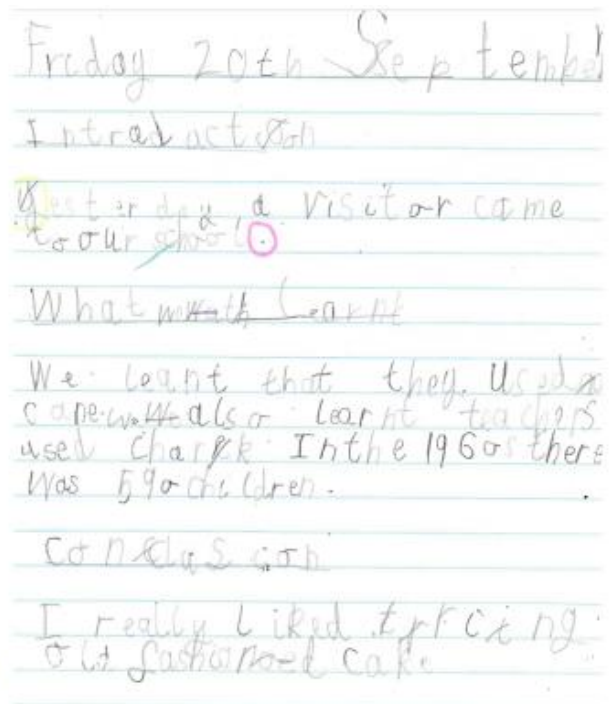 Friday 20th September
Introduction
Yesterday a visitor came
to our school.
What Learnt
We leant that they. Used
cane. We also learnt teachers
used chark. In the 1960s there
was 590 children.
Conclusion
I really liked
old fashioned cake